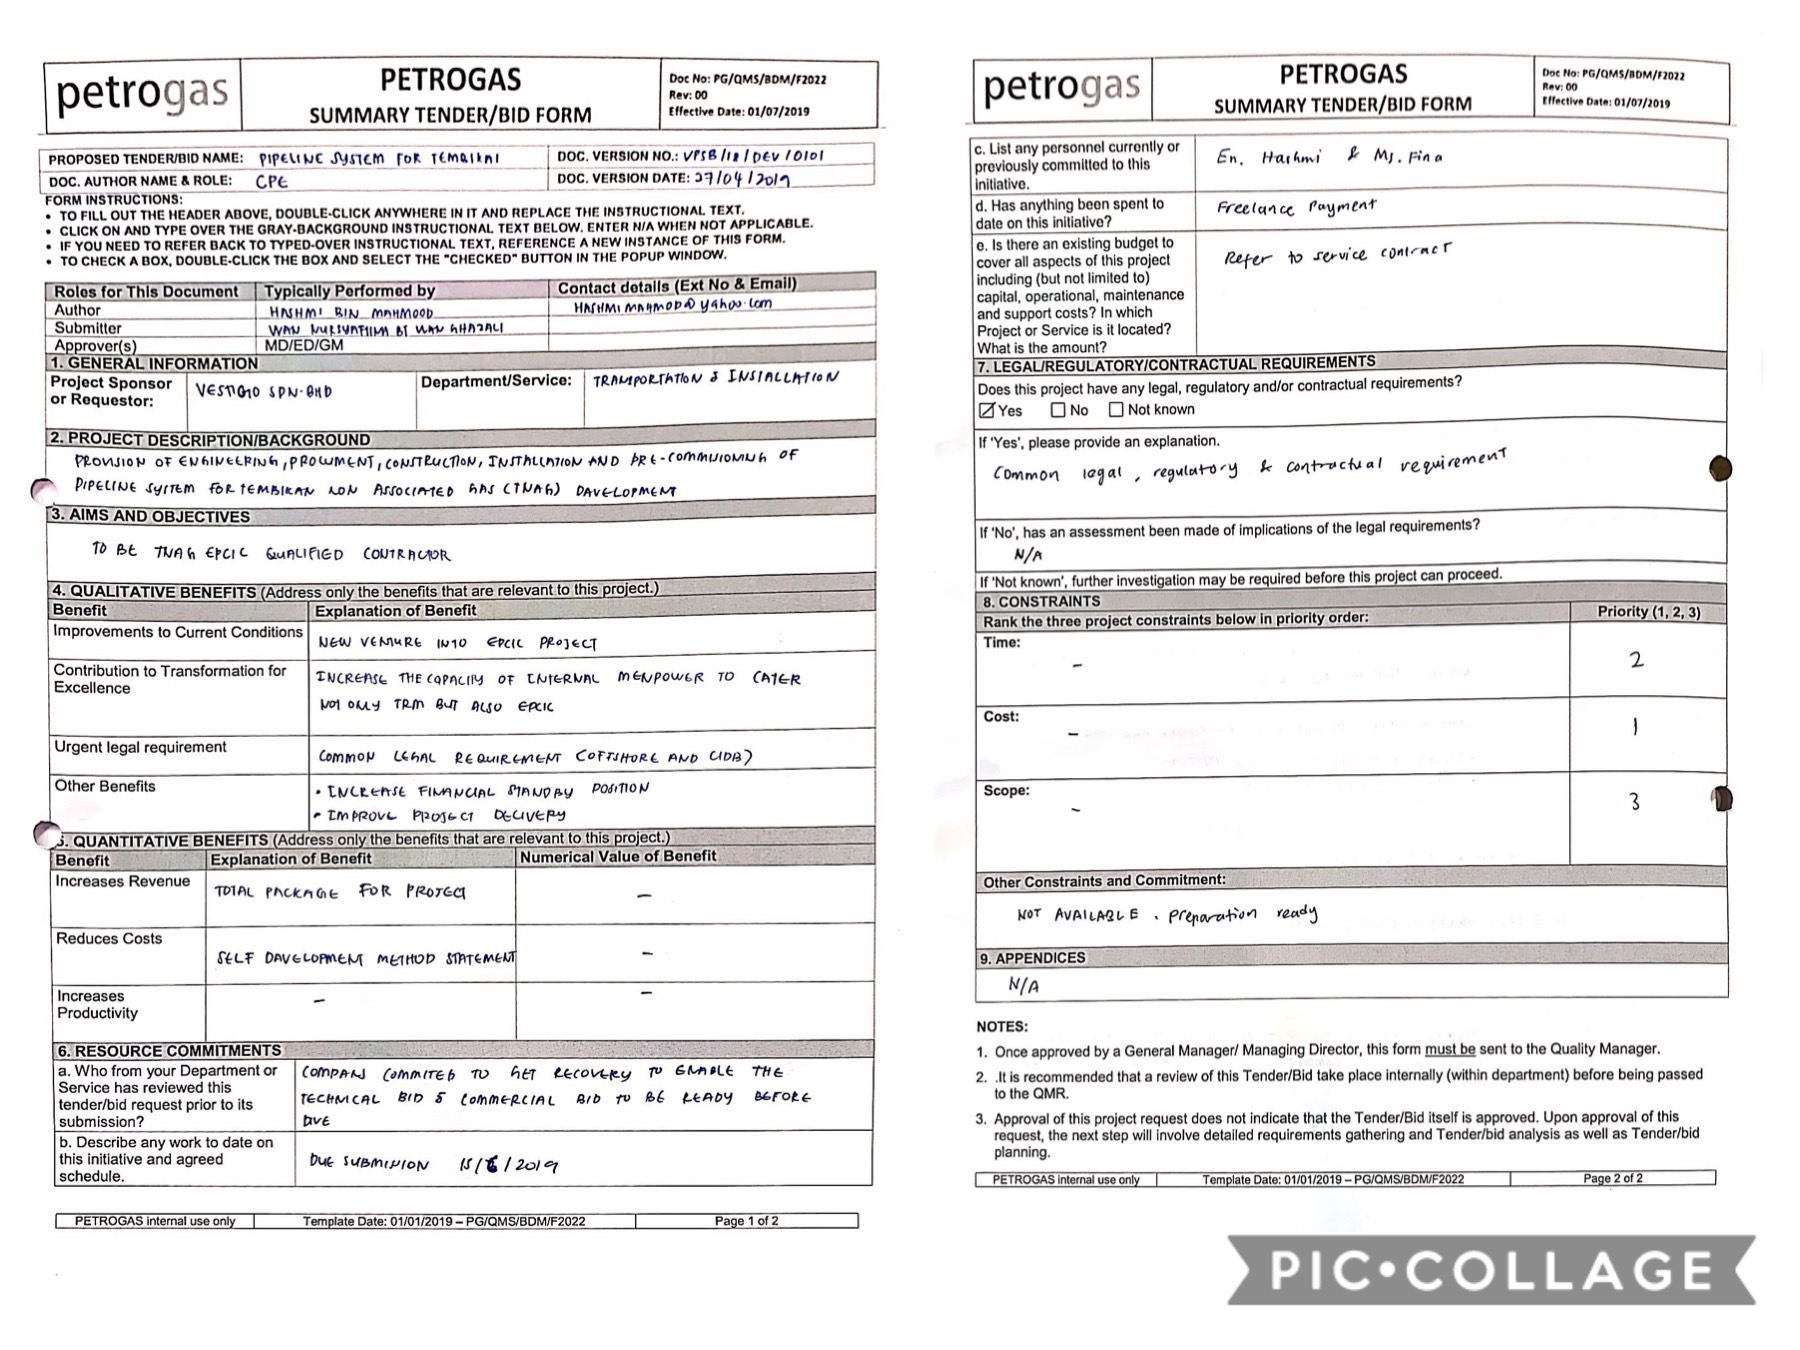 petrogas
PETROGAS
SUMMARY TENDER/BID FORM
Doc No: PG/QMS/BDM/F2022
Rev: 00
Effective Date: 01/07/2019
PROPOSED TENDER/BID NAME: PIPELINE SYSTEM FOR TEMBIKAI
DOC. VERSION NO.: VPSB/18/DEV/0101
DOC. AUTHOR NAME & ROLE: CPE
DOC. VERSION DATE: 27/04/2019
FORM INSTRUCTIONS:
• TO FILL OUT THE HEADER ABOVE, DOUBLE-CLICK ANYWHERE IN IT AND REPLACE THE INSTRUCTIONAL TEXT.
• CLICK ON AND TYPE OVER THE GRAY-BACKGROUND INSTRUCTIONAL TEXT BELOW. ENTER N/A WHEN NOT APPLICABLE.
• IF YOU NEED TO REFER BACK TO TYPED-OVER INSTRUCTIONAL TEXT, REFERENCE A NEW INSTANCE OF THIS FORM.
• TO CHECK A BOX, DOUBLE-CLICK THE BOX AND SELECT THE "CHECKED" BUTTON IN THE POPUP WINDOW.
Roles for This Document Typically Performed by Contact details (Ext No & Email)
Author HASHMI BIN MAHMOOD HASHMIMAHMOD@yahoo.com
Submitter WAN NURSYAFIINA BT WAN GHAZALI
Approver(s) MD/ED/GM
1. GENERAL INFORMATION
Project Sponsor
or Requestor:
VESTIGO SDN.BHD
Department/Service: TRANPORTATION & INSTALLATION
2. PROJECT DESCRIPTION/BACKGROUND
PROVISION OF ENGINEERING, PROCUMENT, CONSTRUCTION, INSTALLATION AND PRE-COMMUIONING OF
PIPELINE SYSTEM FOR TEMBIKAN NON ASSOCIATED GAS (TNAG) DAVELOPMENT
3. AIMS AND OBJECTIVES
TO BE TNAG EPCIC QUALIFIED CONTRACTOR
4. QUALITATIVE BENEFITS (Address only the benefits that are relevant to this project.)
Benefit Explanation of Benefit
Improvements to Current Conditions NEW VENTURE INTO EPCIC PROJECT
Contribution to Transformation for
Excellence
INCREASE THE CAPACITY OF INTERNAL MENPOWER TO CATER
NOT ONLY TRM BUT ALSO EPCIC
Urgent legal requirement COMMON LEGAL REQUIREMENT (OFFSHORE AND CIDB)
Other Benefits • INCREASE FINANCIAL STANDBY POSITION
• IMPROVE PROJECT DELIVERY
5. QUANTITATIVE BENEFITS (Address only the benefits that are relevant to this project.)
Benefit Explanation of Benefit Numerical Value of Benefit
Increases Revenue TOTAL PACKAGE FOR PROJECT –
Reduces Costs SELF DAVELOPMENT METHOD STATEMENT –
Increases
Productivity
– –
6. RESOURCE COMMITMENTS
a. Who from your Department or
Service has reviewed this
tender/bid request prior to its
submission?
COMPANY COMMITED TO GET RECOVERY TO ENABLE THE
TECHNICAL BID & COMMERCIAL BID TO BE READY BEFORE
DUE
b. Describe any work to date on
this initiative and agreed
schedule.
DUE SUBMISSION 15/6/2019
PETROGAS internal use only Template Date: 01/01/2019 – PG/QMS/BDM/F2022 Page 1 of 2
petrogas
PETROGAS
SUMMARY TENDER/BID FORM
Doc No: PG/QMS/BDM/F2022
Rev: 00
Effective Date: 01/07/2019
c. List any personnel currently or
previously committed to this
initiative.
En. Hashmi & Ms. Fina
d. Has anything been spent to
date on this initiative?
Freelance Payment
e. Is there an existing budget to
cover all aspects of this project
including (but not limited to)
capital, operational, maintenance
and support costs? In which
Project or Service is it located?
What is the amount?
Refer to service contract
7. LEGAL/REGULATORY/CONTRACTUAL REQUIREMENTS
Does this project have any legal, regulatory and/or contractual requirements?
☑ Yes ☐ No ☐ Not known
If 'Yes', please provide an explanation.
Common legal, regulatory & contractual requirement
If 'No', has an assessment been made of implications of the legal requirements?
N/A
If 'Not known', further investigation may be required before this project can proceed.
8. CONSTRAINTS
Rank the three project constraints below in priority order: Priority (1, 2, 3)
Time: – 2
Cost: – 1
Scope: – 3
Other Constraints and Commitment:
NOT AVAILABLE . preparation ready
9. APPENDICES
N/A
NOTES:
1. Once approved by a General Manager/ Managing Director, this form must be sent to the Quality Manager.
2. .It is recommended that a review of this Tender/Bid take place internally (within department) before being passed
to the QMR.
3. Approval of this project request does not indicate that the Tender/Bid itself is approved. Upon approval of this
request, the next step will involve detailed requirements gathering and Tender/bid analysis as well as Tender/bid
planning.
PETROGAS internal use only Template Date: 01/01/2019 – PG/QMS/BDM/F2022 Page 2 of 2
PIC•COLLAGE